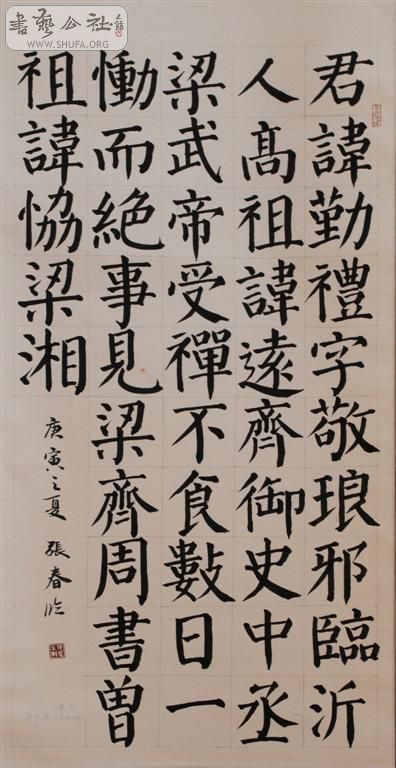 書藝公社
WWW.SHUFA.ORG
君諱勤禮字敬琅邪臨沂
人髙祖諱遠齊御史中丞
梁武帝受禪不食數日一
慟而絕事見梁齊周書曽
祖諱恊梁湘
庚寅之夏 張春临